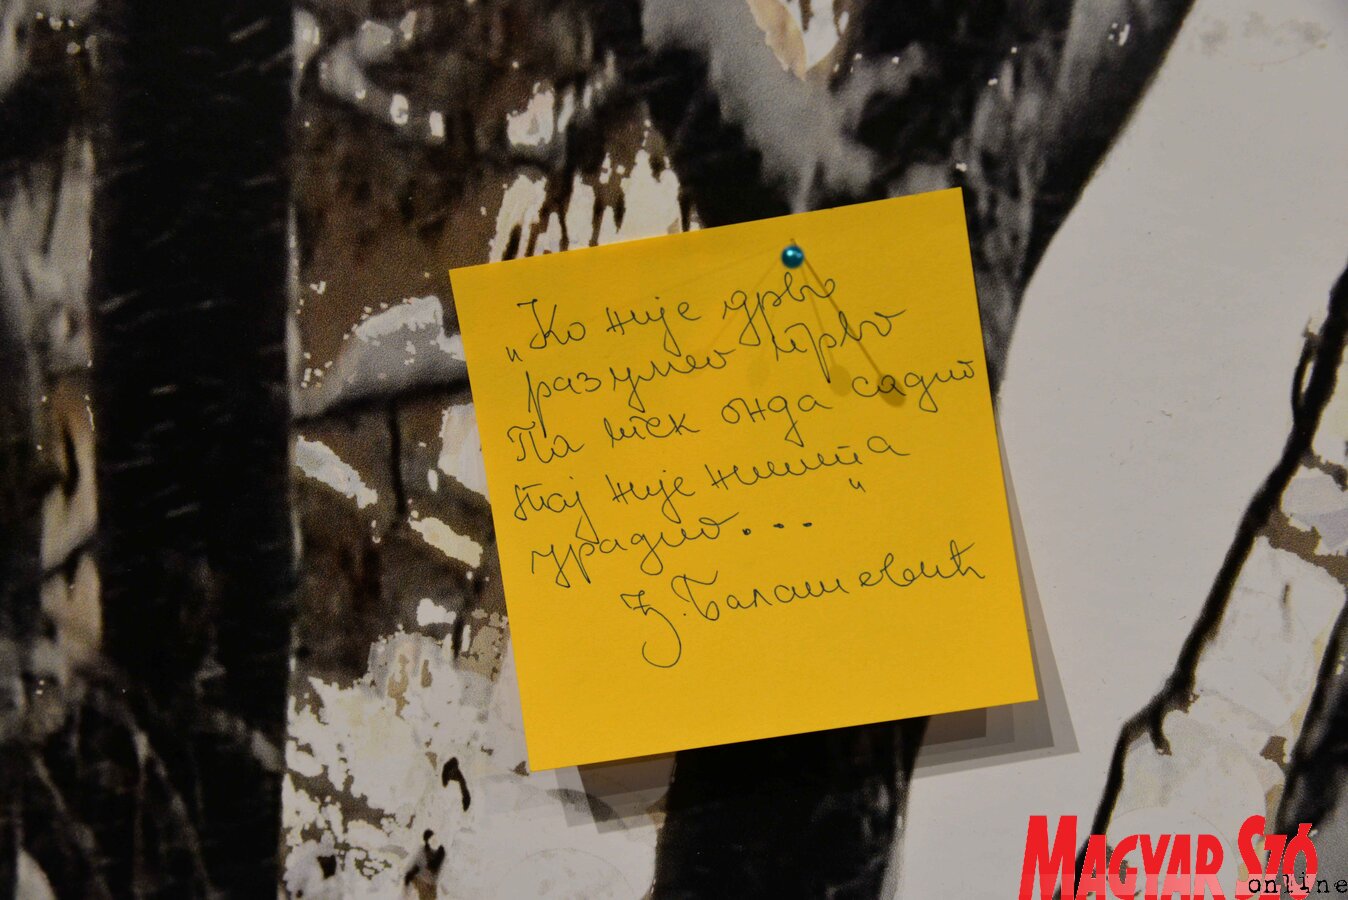 „Ко није дрво
разумео прво
Па тек онда садио
тај није ништа
урадио..."
Ђ. Балашевић
MAGYAR SZÓ
online